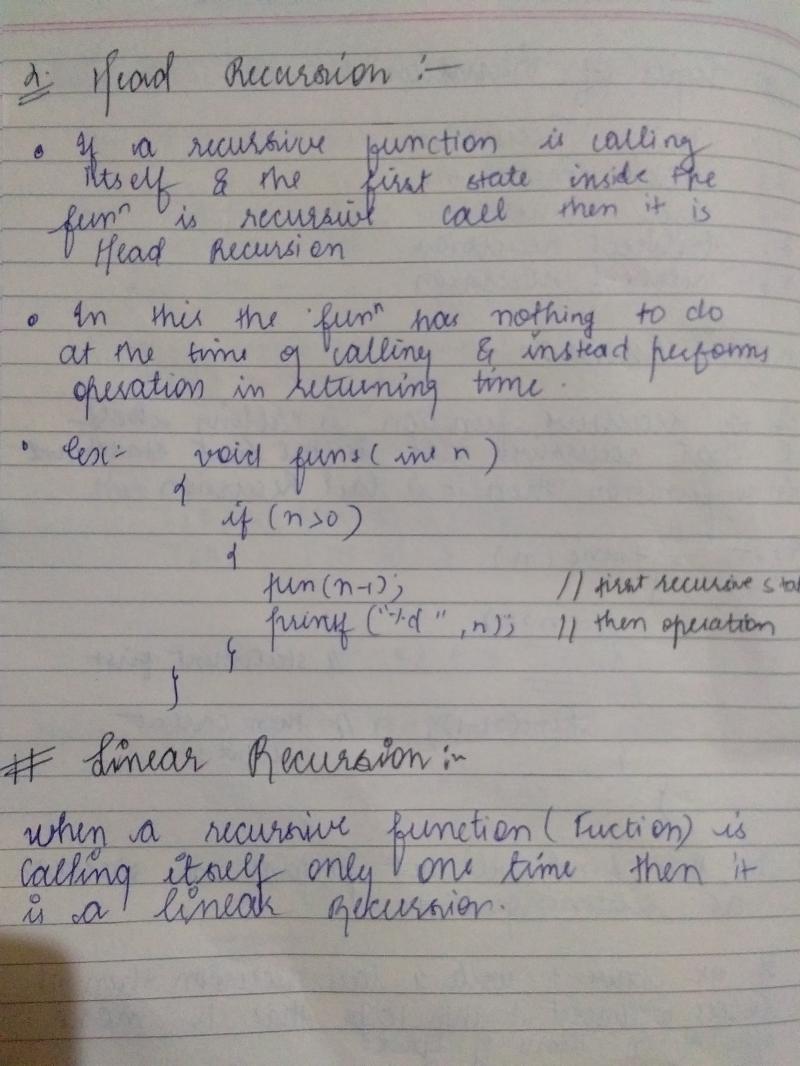 2. Head Recursion :-
• If a recursive function is calling
itself & the first state inside the
funⁿ is recursive call then it is
Head Recursion
• In this the funⁿ has nothing to do
at the time of calling & instead performs
operation in returning time.
• ex:- void funs(int n)
{
if (n>0)
{
fun(n-1); // first recursive sta
printf ("%d", n); // then operation
}
}
# Linear Recursion :-
when a recursive function (Fuction) is
calling itself only one time then it
is a linear Recursion.